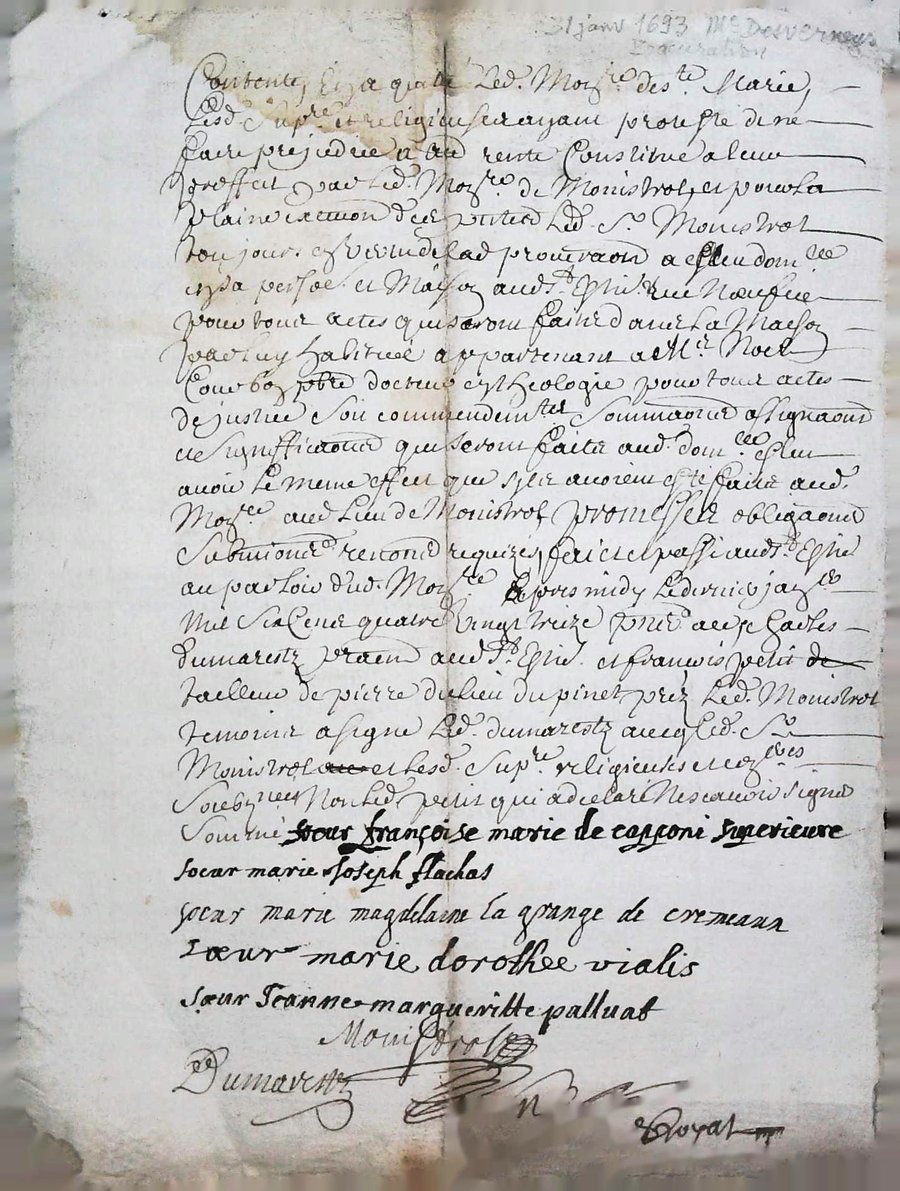 31 janv 1693 Me Desverneys
Procuration
Contente, Led. Monre. de ste. Marie,
Lesd. Supre. et religieuses ayant proteste de ne
faire prejudice a rente Constitué a leur
proffit par Led. Monre. de Monistrol, et pour La
plaine Led. Sr. Monistrol
toujours en vertu de lad procuraon a Esleu domlle
en sa persoe. et Maison aud St. Estne. rue Neufve
pour tous actes qui seront faits dans La Maison
par Luy habitué appartenant a Mre Noel
Courbon pbre docteur en theologie pour tous actes
de justice Soit commendemts Sommaons assignaons
et Signifficaons qui seront faits aud. domlle Esleu
avoir Le meme effect que syls avoient esté faits aud.
Monre. aud Lieu de Monistrol promesses obligaons
Submions renons requizes, faict et passé aud St. Estne
au parloir dud. Monre Apres midy Le dernier janer
Mil Six Cens quatre vingt treize pnt
dumarestz aud St. Estne. et françois petit
tailleur de pierre du lieu du pinet prez Led. Monistrol
temoins a signé Led. dumarestz avecq Led. Sr.
Monistrol et Lesd. Supre. religieuses
Soubznees Non Led. petit qui a declaré Ne scavoir signer
Sommé sœur françoise marie de capponi superieure
sœur marie Joseph flachas
sœur marie magdelaine La grange de cremeaux
sœur marie dorothée vialis
sœur Jeanne margueritte palluat
Monistrol
Dumarestz
Royal